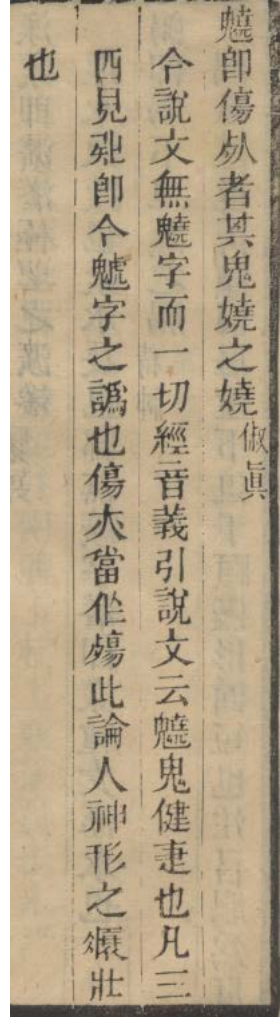 䰫卽傷死者其鬼嬈之嬈俶眞
今說文無䰫字而一切經音義引說文云䰫鬼健疌也凡三
四見卽今字之譌也傷亦當作殤此論人神形之壯
也